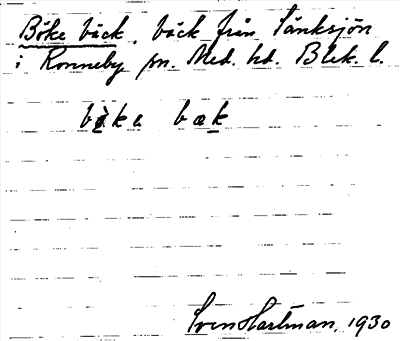 Böke bäck, bäck från Sänksjön
i Ronneby sn. Med. hd. Blek. l.
bö̀ke bæk
Sven Hartman, 1930